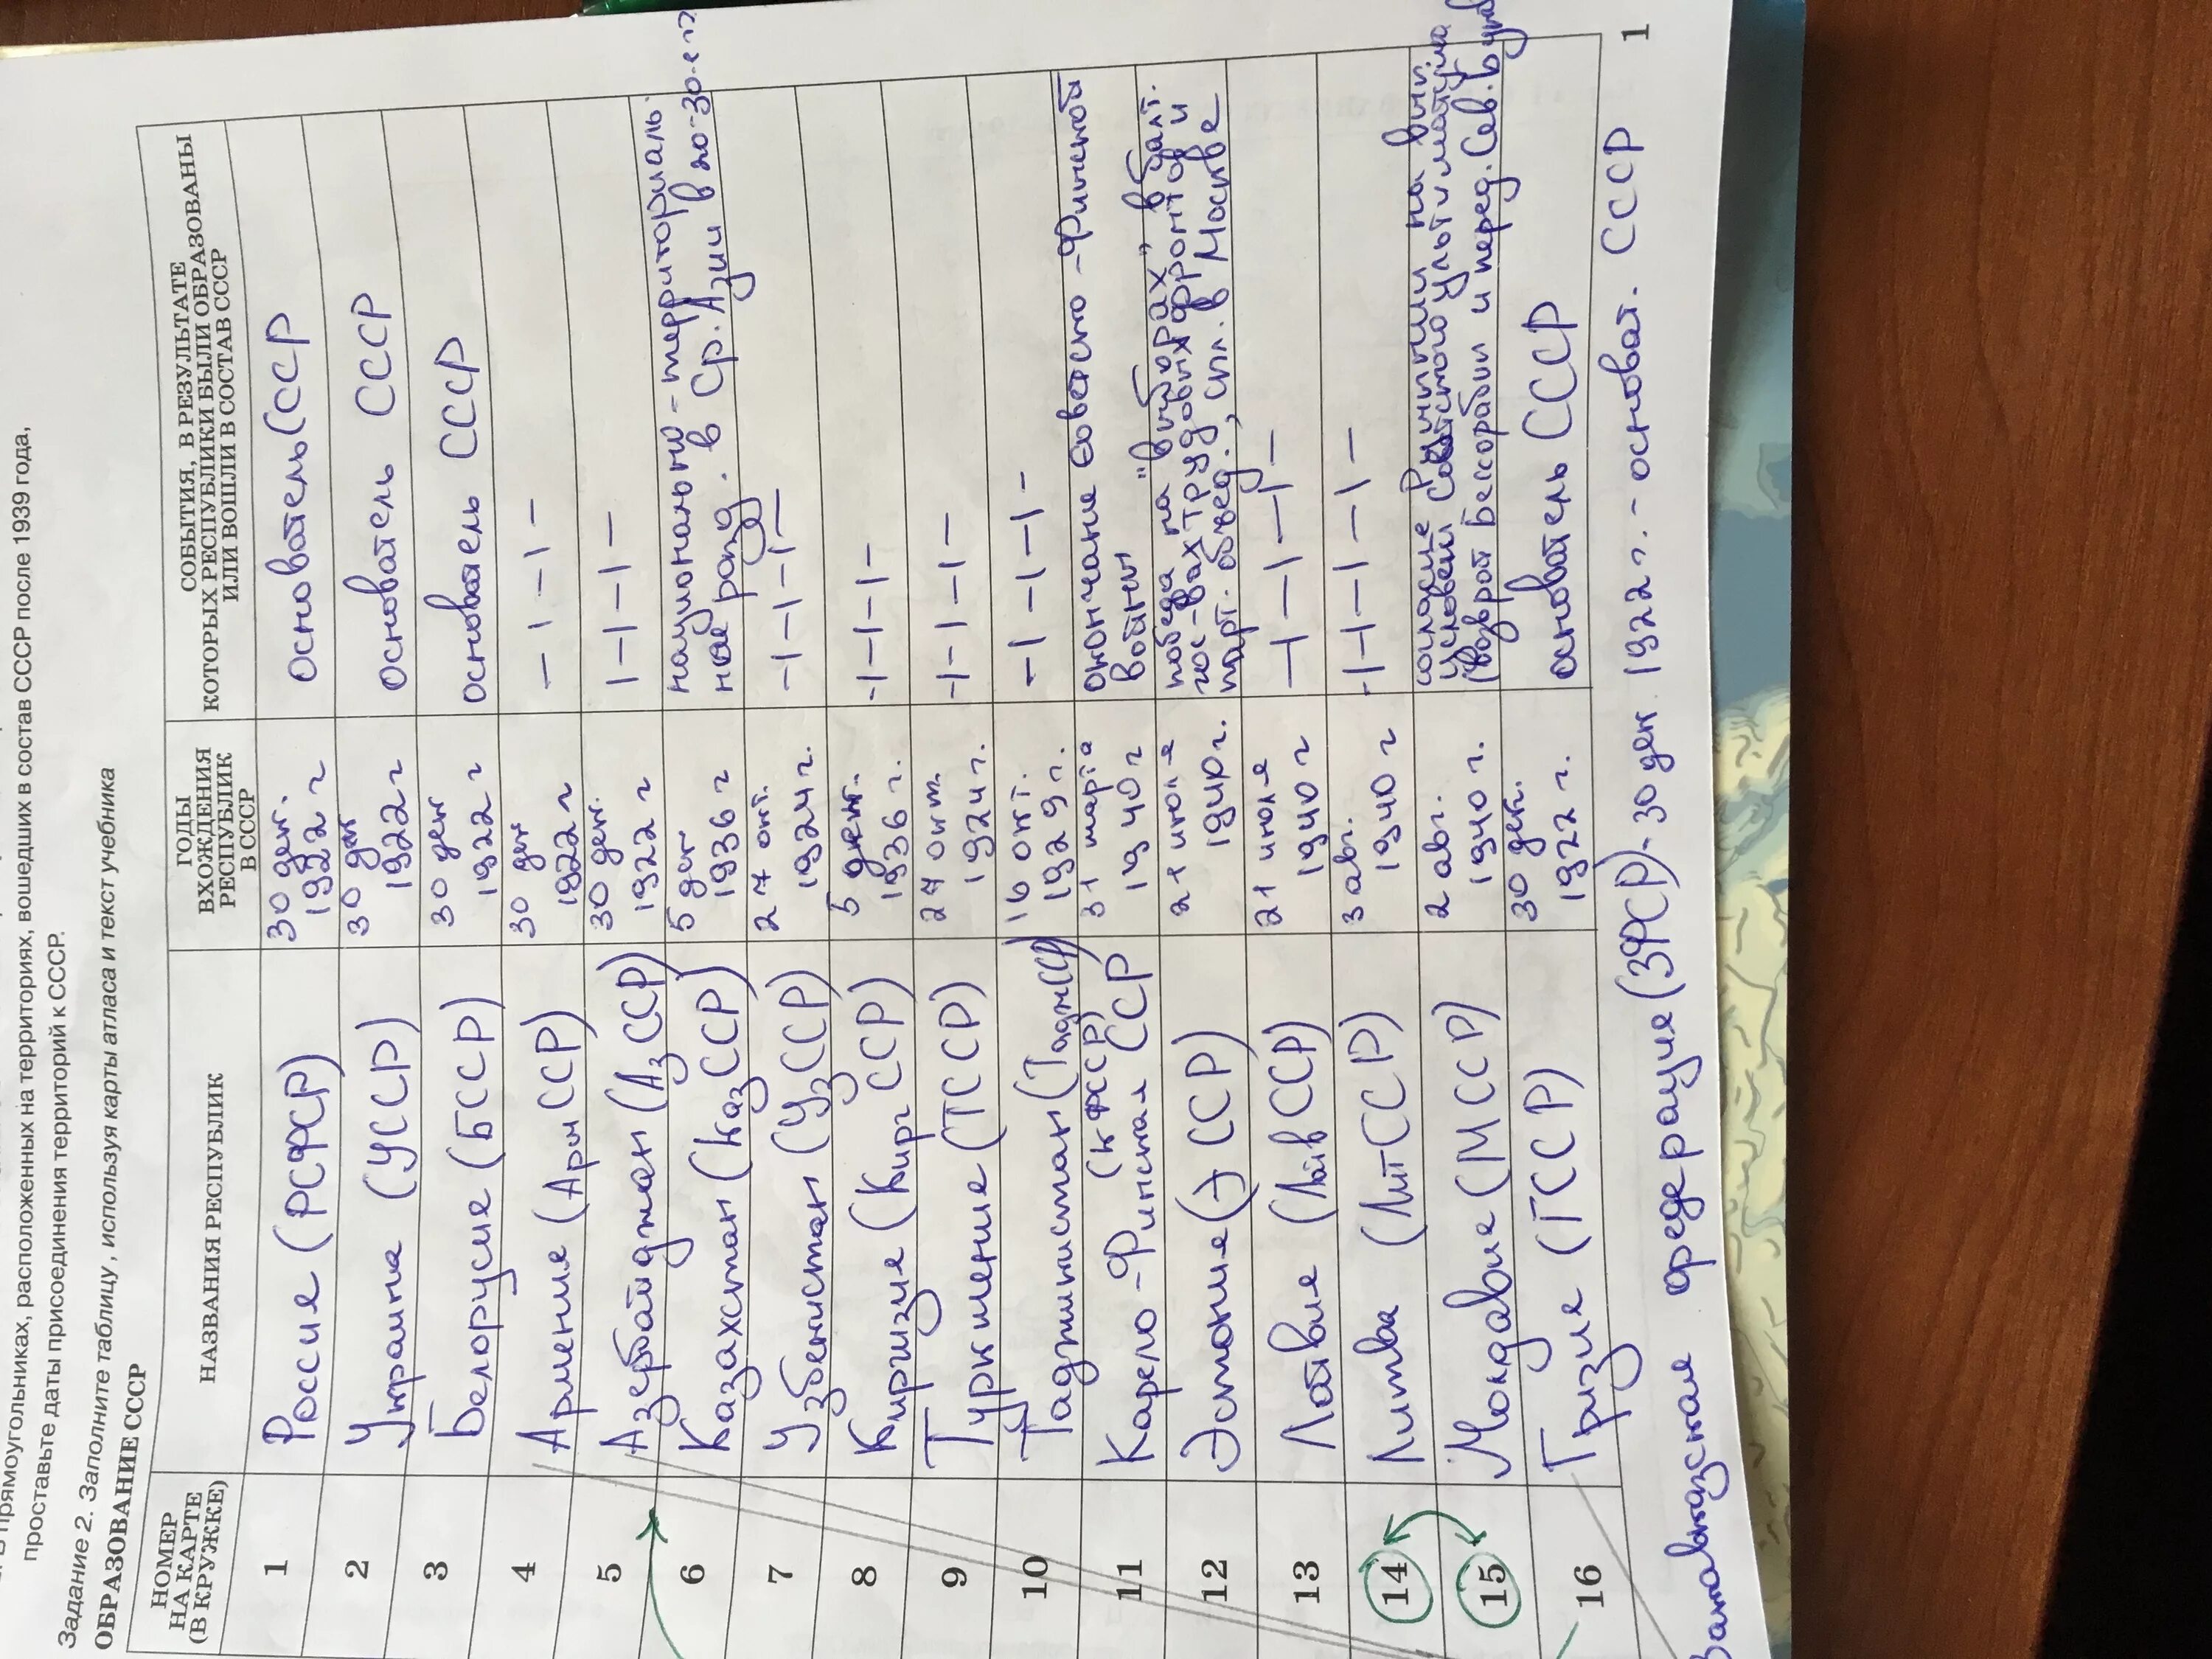 В прямоугольниках, расположенных на территориях, вошедших в состав СССР после 1939 года,
проставьте даты присоединения территорий к СССР.
Задание 2. Заполните таблицу, используя карты атласа и текст учебника
ОБРАЗОВАНИЕ СССР
НОМЕР НА КАРТЕ (В КРУЖКЕ)
НАЗВАНИЯ РЕСПУБЛИК
ГОДЫ ВХОЖДЕНИЯ РЕСПУБЛИК В СССР
СОБЫТИЯ, В РЕЗУЛЬТАТЕ КОТОРЫХ РЕСПУБЛИКИ БЫЛИ ОБРАЗОВАНЫ ИЛИ ВОШЛИ В СОСТАВ СССР
1 Россия (РСФСР) 30 дек. 1922 г основатель СССР
2 Украина (УССР) 30 дек 1922 г основатель СССР
3 Белорусия (БССР) 30 дек 1922 г основатель СССР
4 Армения (АрмССР) 30 дек 1922 г – I – I –
5 Азербайджан (АзССР) 30 дек. 1922 г I – I – I –
6 Казахстан (КазССР) 5 дек 1936 г национально-территориальное разд. в Ср. Азии в 20-30-е гг
7 Узбекистан (УзССР) 27 окт. 1924 г. – I – I – I –
8 Киргизия (КиргССР) 5 дек. 1936 г. - I – I – I –
9 Туркмения (ТССР) 27 окт. 1924 г. - I – I – I –
10 Таджикистан (ТаджССР) 16 окт. 1929 г. – I – I – I –
11 Карело-Финская ССР (КФССР) 31 марта 1940 г окончание советско-финской войны
12 Эстония (ЭССР) 21 июля 1940 г. победа на "выборах" в балт. гос-вах трудовых фронтов и парт. объед., спл. в Москве
13 Латвия (ЛатвССР) 21 июля 1940 г – I – I – I –
14 Литва (ЛитССР) 3 авг. 1940 г - I – I – I –
15 Молдавия (МССР) 2 авг. 1940 г. согласие Румынии на вып. условий Советского ультиматума (возврат Бессарабии и перед. Сев.
16 Грузия (ГССР) 30 дек. 1922 г. основатель СССР
1
Закавказская федерация (ЗФСР) - 30 дек 1922 г. - основат. СССР